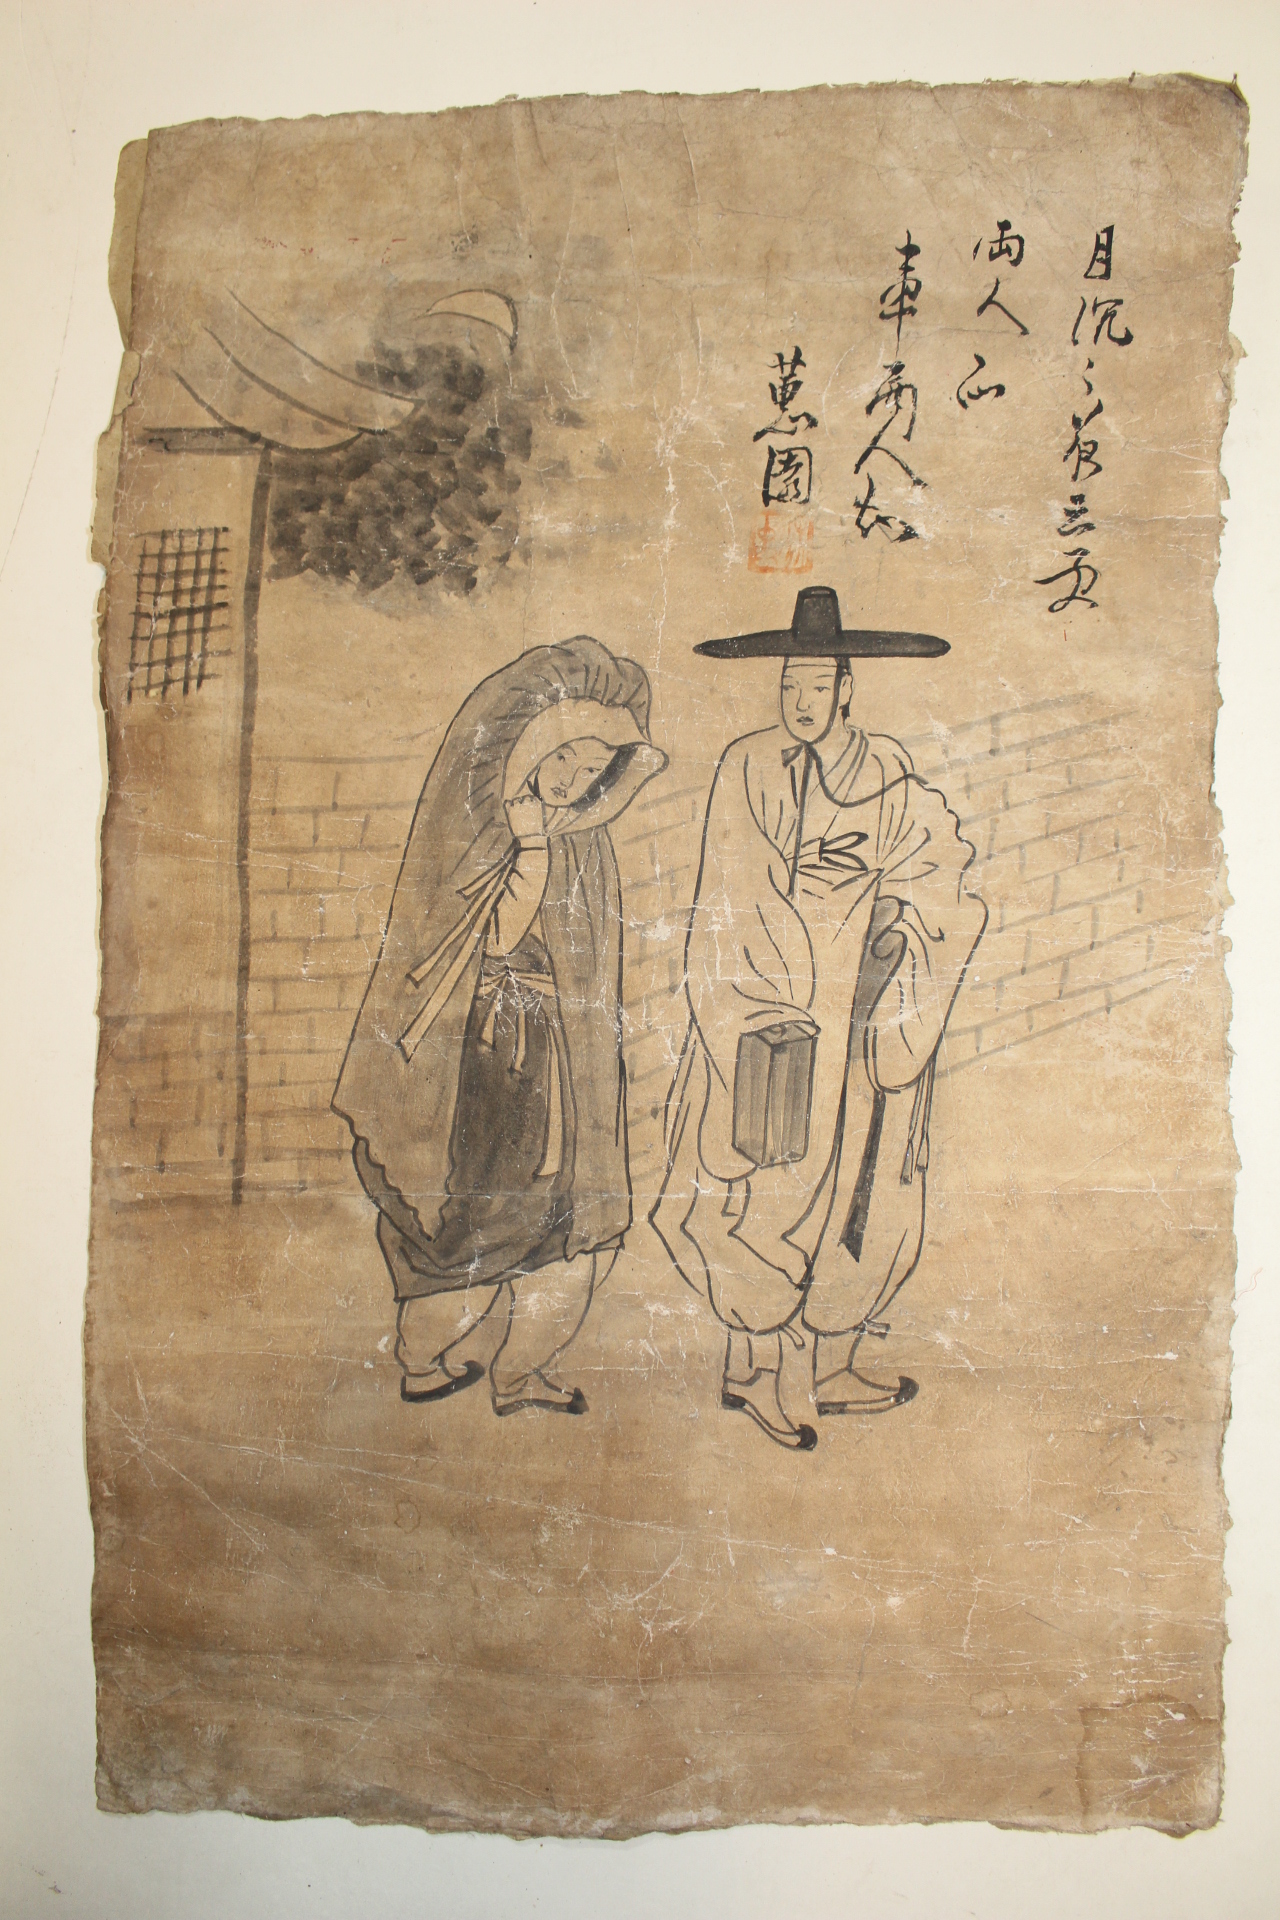 月沉〻夜三更
両人心
事両人知
蕙園